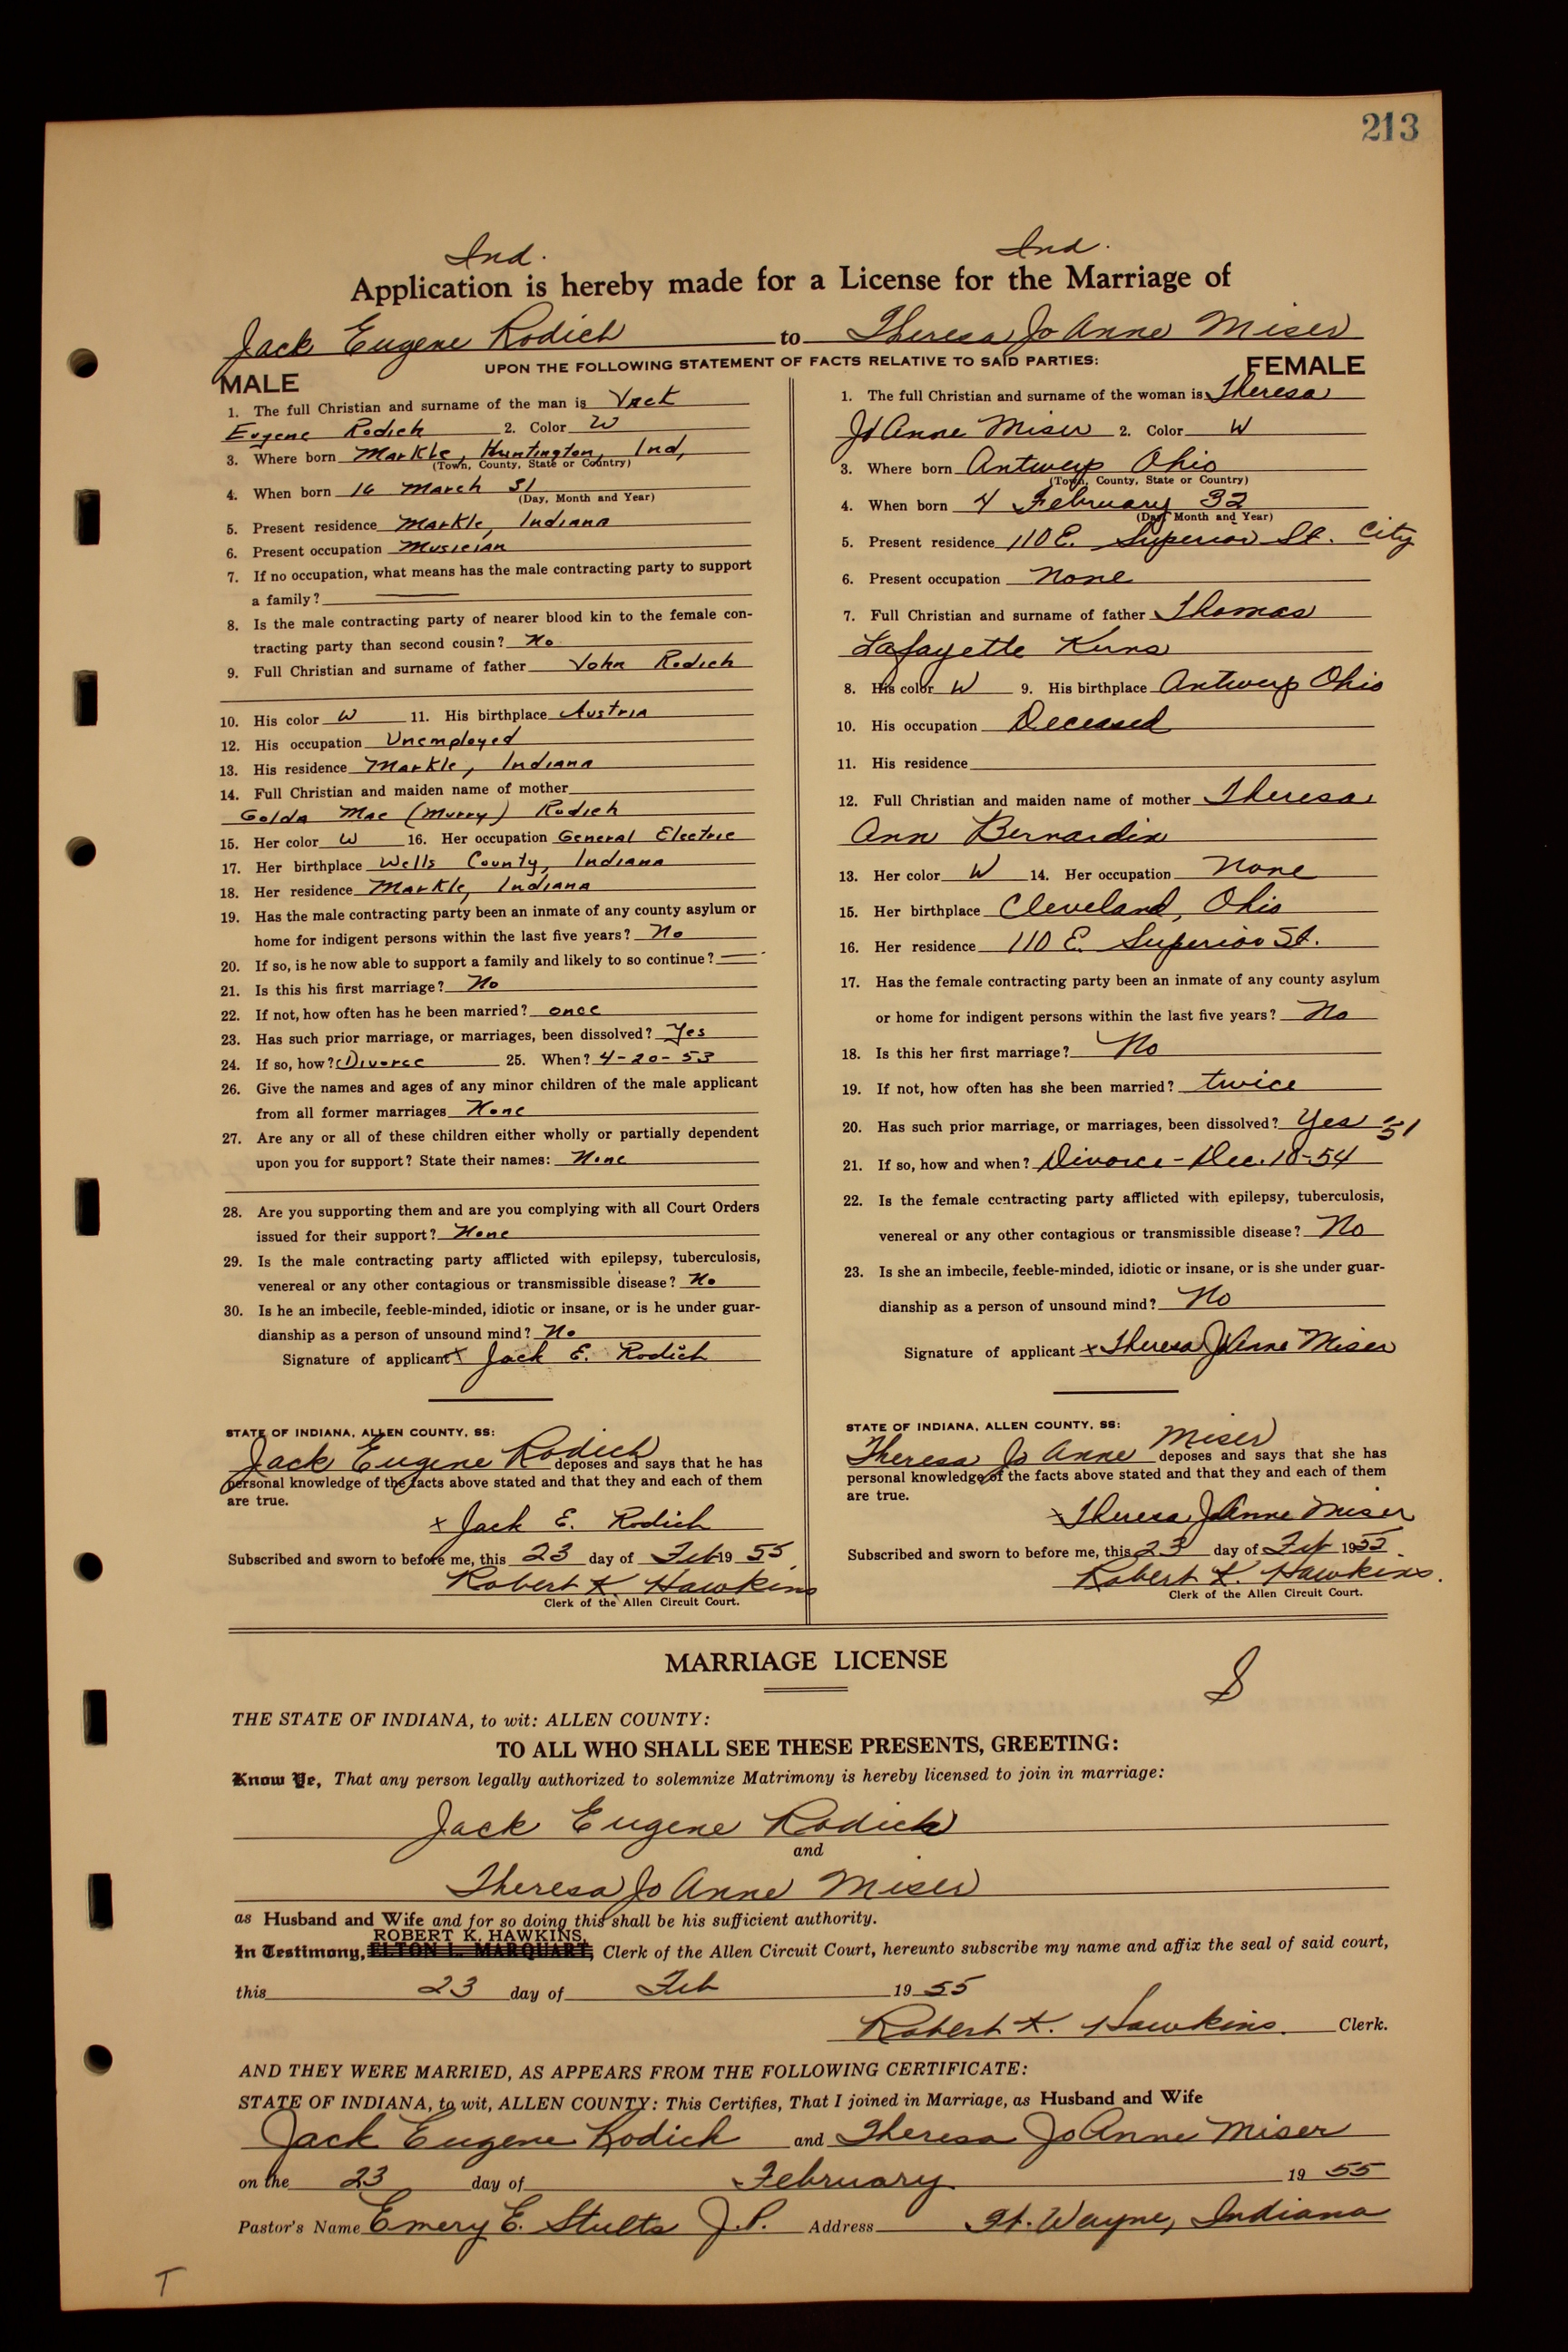 213
Ind. Ind.
Application is hereby made for a License for the Marriage of
Jack Eugene Rodich to Theresa Jo Anne Miser
UPON THE FOLLOWING STATEMENT OF FACTS RELATIVE TO SAID PARTIES:
MALE
1. The full Christian and surname of the man is Jack
Eugene Rodich 2. Color W
3. Where born Markle, Huntington, Ind,
(Town, County, State or Country)
4. When born 16 March 31
(Day, Month and Year)
5. Present residence Markle, Indiana
6. Present occupation Musician
7. If no occupation, what means has the male contracting party to support
a family?
8. Is the male contracting party of nearer blood kin to the female con-
tracting party than second cousin? No
9. Full Christian and surname of father John Rodich
10. His color W 11. His birthplace Austria
12. His occupation Unemployed
13. His residence Markle, Indiana
14. Full Christian and maiden name of mother
Golda Mae (Murry) Rodich
15. Her color W 16. Her occupation General Electric
17. Her birthplace Wells County, Indiana
18. Her residence Markle, Indiana
19. Has the male contracting party been an inmate of any county asylum or
home for indigent persons within the last five years? No
20. If so, is he now able to support a family and likely to so continue?
21. Is this his first marriage? No
22. If not, how often has he been married? once
23. Has such prior marriage, or marriages, been dissolved? Yes
24. If so, how? Divorce 25. When? 4-20-53
26. Give the names and ages of any minor children of the male applicant
from all former marriages None
27. Are any or all of these children either wholly or partially dependent
upon you for support? State their names: None
28. Are you supporting them and are you complying with all Court Orders
issued for their support? None
29. Is the male contracting party afflicted with epilepsy, tuberculosis,
venereal or any other contagious or transmissible disease? No
30. Is he an imbecile, feeble-minded, idiotic or insane, or is he under guar-
dianship as a person of unsound mind? No
Signature of applicant x Jack E. Rodich
STATE OF INDIANA, ALLEN COUNTY, SS:
Jack Eugene Rodich deposes and says that he has
personal knowledge of the facts above stated and that they and each of them
are true.
x Jack E. Rodich
Subscribed and sworn to before me, this 23 day of Feb 19 55
Robert K. Hawkins
Clerk of the Allen Circuit Court.
FEMALE
1. The full Christian and surname of the woman is Theresa
Jo Anne Miser 2. Color W
3. Where born Antwerp Ohio
(Town, County, State or Country)
4. When born 4 February 32
(Day Month and Year)
5. Present residence 110 E. Superior St. City
6. Present occupation None
7. Full Christian and surname of father Thomas
Lafayette Kuns
8. His color W 9. His birthplace Antwerp Ohio
10. His occupation Deceased
11. His residence
12. Full Christian and maiden name of mother Theresa
Ann Bernardin
13. Her color W 14. Her occupation None
15. Her birthplace Cleveland, Ohio
16. Her residence 110 E. Superior St.
17. Has the female contracting party been an inmate of any county asylum
or home for indigent persons within the last five years? No
18. Is this her first marriage? No
19. If not, how often has she been married? twice
20. Has such prior marriage, or marriages, been dissolved? Yes 51
21. If so, how and when? Divorce - Dec. 10-54
22. Is the female contracting party afflicted with epilepsy, tuberculosis,
venereal or any other contagious or transmissible disease? No
23. Is she an imbecile, feeble-minded, idiotic or insane, or is she under guar-
dianship as a person of unsound mind? No
Signature of applicant x Theresa JoAnne Miser
STATE OF INDIANA, ALLEN COUNTY, SS:
Theresa Jo Anne Miser deposes and says that she has
personal knowledge of the facts above stated and that they and each of them
are true.
x Theresa JoAnne Miser
Subscribed and sworn to before me, this 23 day of Feb 1955.
Robert K. Hawkins.
Clerk of the Allen Circuit Court.
MARRIAGE LICENSE
THE STATE OF INDIANA, to wit: ALLEN COUNTY:
TO ALL WHO SHALL SEE THESE PRESENTS, GREETING:
Know Ye, That any person legally authorized to solemnize Matrimony is hereby licensed to join in marriage:
Jack Eugene Rodich
and
Theresa Jo Anne Miser
as Husband and Wife and for so doing this shall be his sufficient authority.
ROBERT K. HAWKINS,
In Testimony, ELTON L. MARQUART, Clerk of the Allen Circuit Court, hereunto subscribe my name and affix the seal of said court,
this 23 day of Feb 19 55
Robert K. Hawkins. Clerk.
AND THEY WERE MARRIED, AS APPEARS FROM THE FOLLOWING CERTIFICATE:
STATE OF INDIANA, to wit, ALLEN COUNTY: This Certifies, That I joined in Marriage, as Husband and Wife
Jack Eugene Rodich and Theresa JoAnne Miser
on the 23 day of February 19 55
Pastor's Name Emery E. Stults J.P. Address Ft. Wayne, Indiana
T